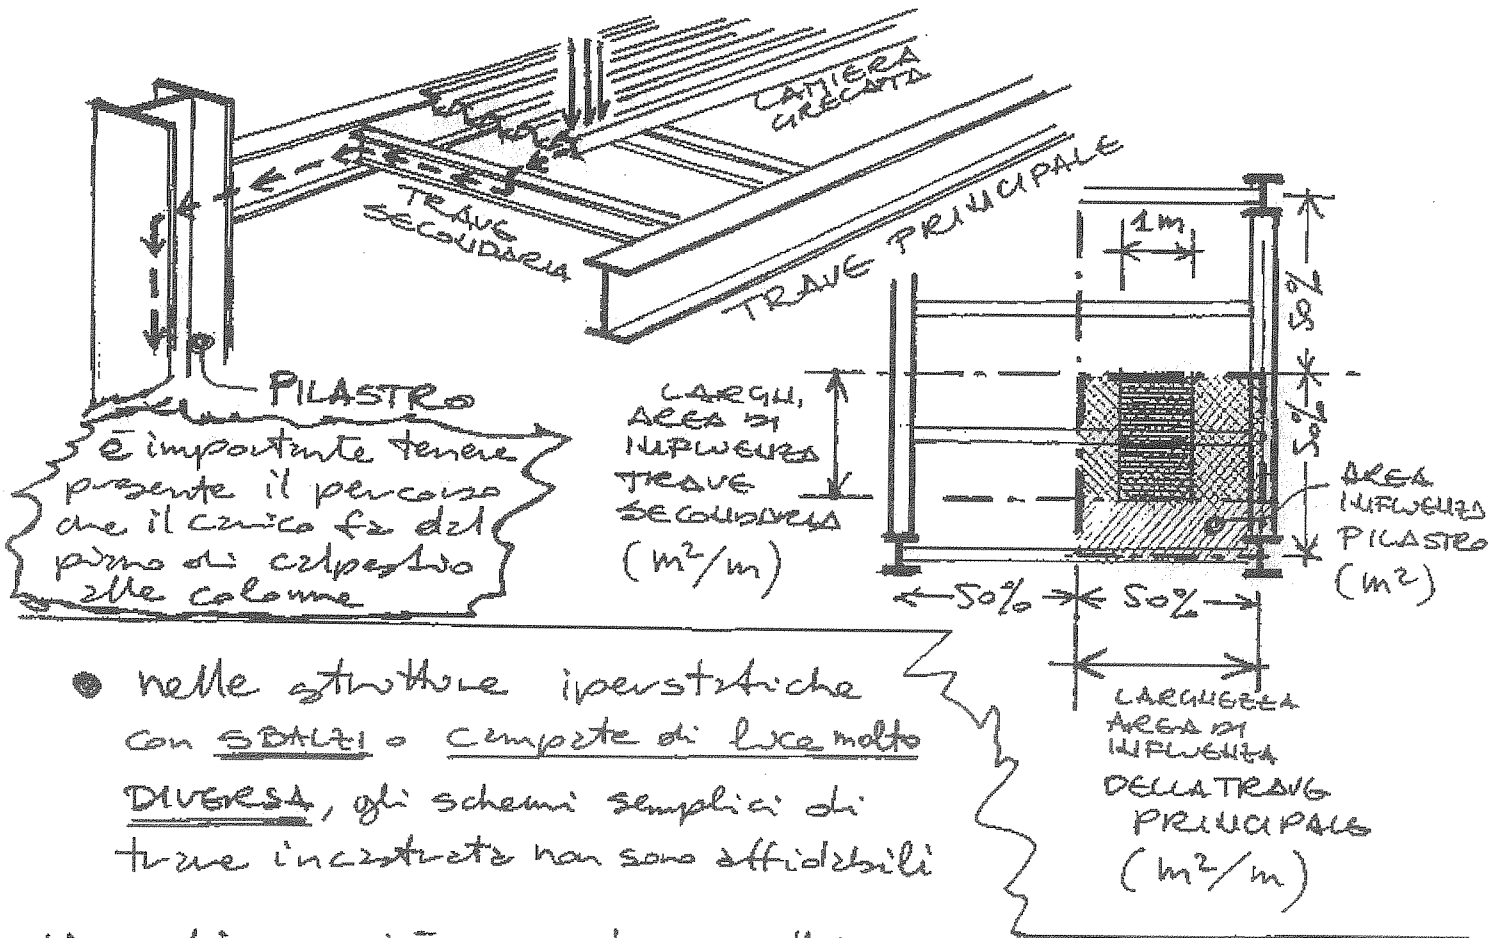 LAMIERA
GRECATA
TRAVE
SECONDARIA
TRAVE PRINCIPALE
PILASTRO
è importante tenere
presente il percorso
che il carico fa dal
piano di calpestio
alle colonne
1m
50%
50%
LARGH.
AREA DI
INFLUENZA
TRAVE
SECONDARIA
(m²/m)
AREA
INFLUENZA
PILASTRO
(m²)
50% 50%
LARGHEZZA
AREA DI
INFLUENZA
DELLA TRAVE
PRINCIPALE
(m²/m)
• nelle strutture iperstatiche
con SBALZI o campate di luce molto
DIVERSA, gli schemi semplici di
trave incastrata non sono affidabili